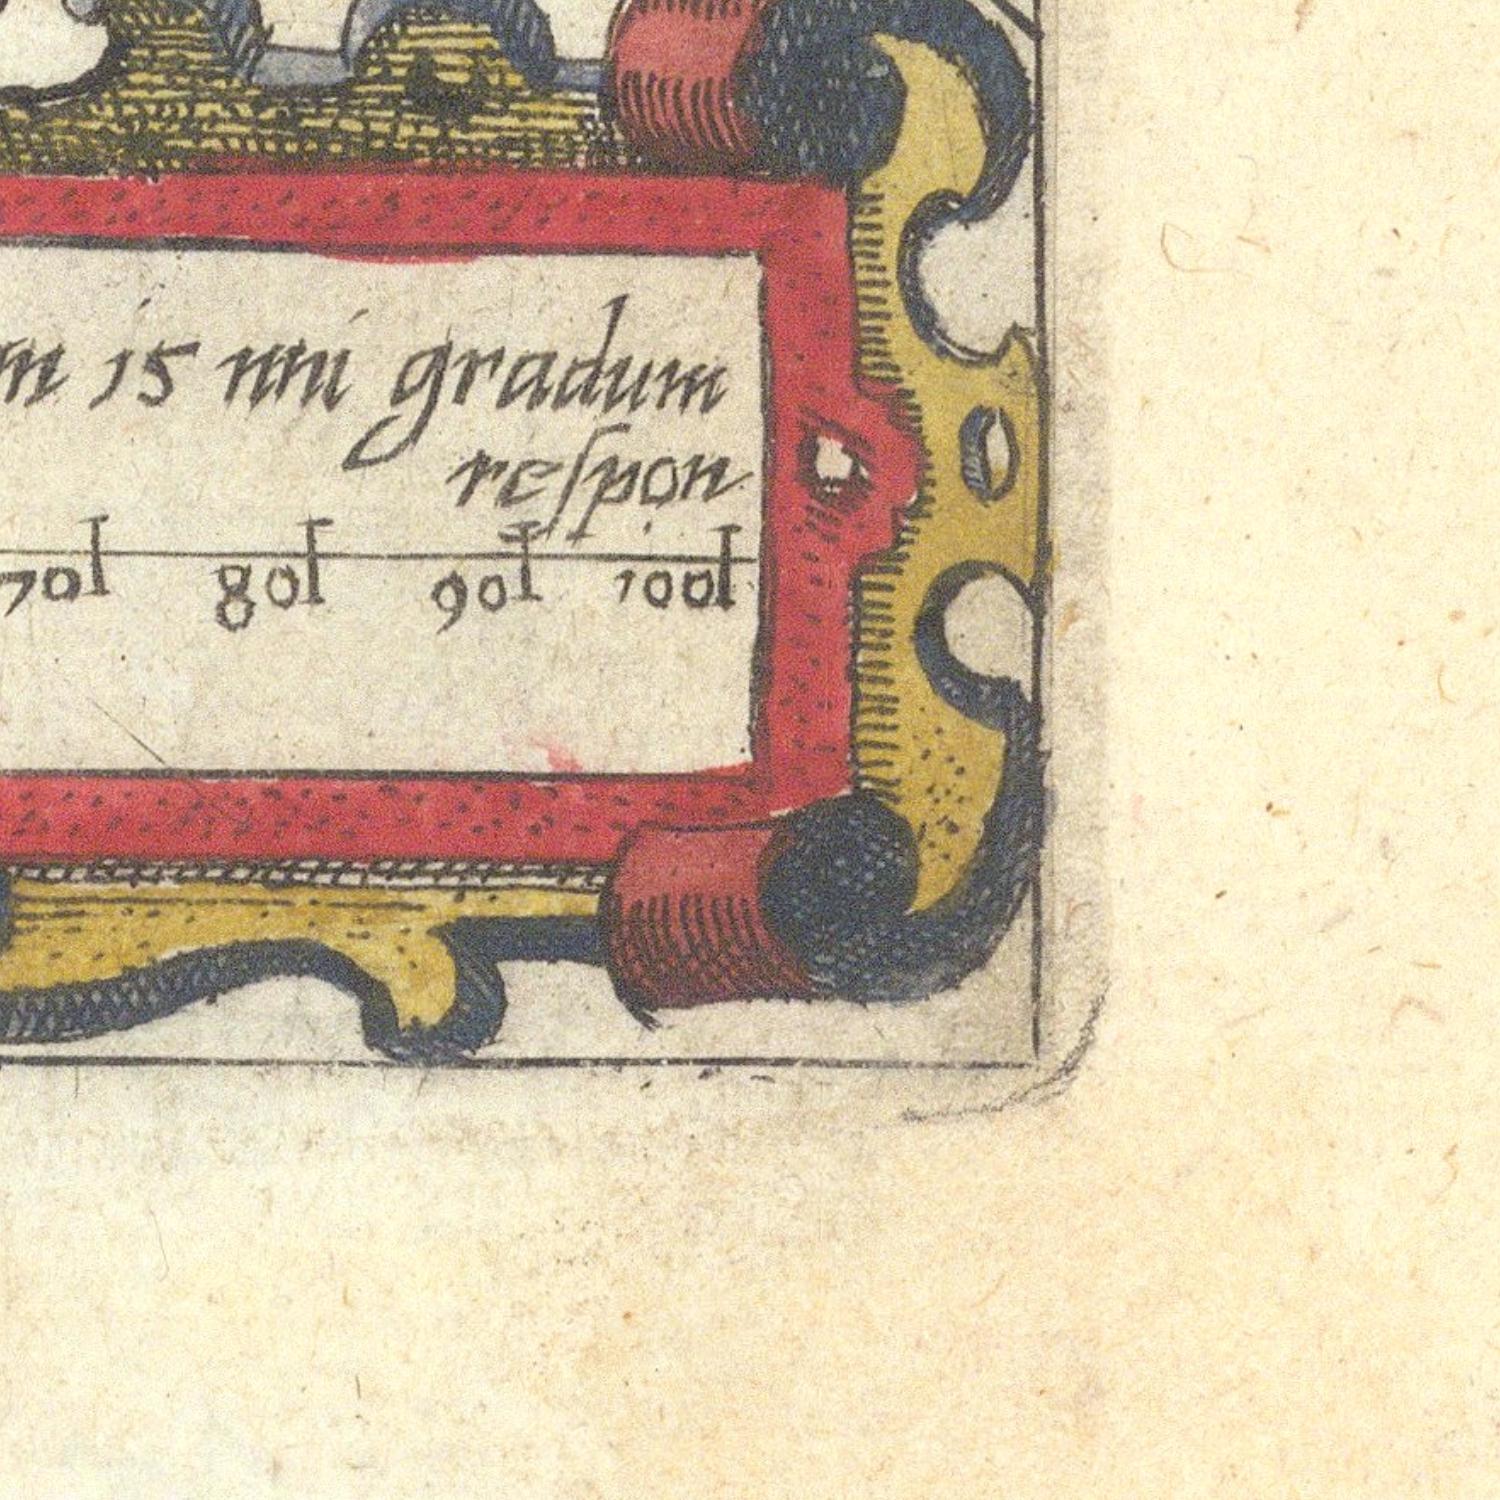 m 15 uni gradum
reſpon
70 80 90 100